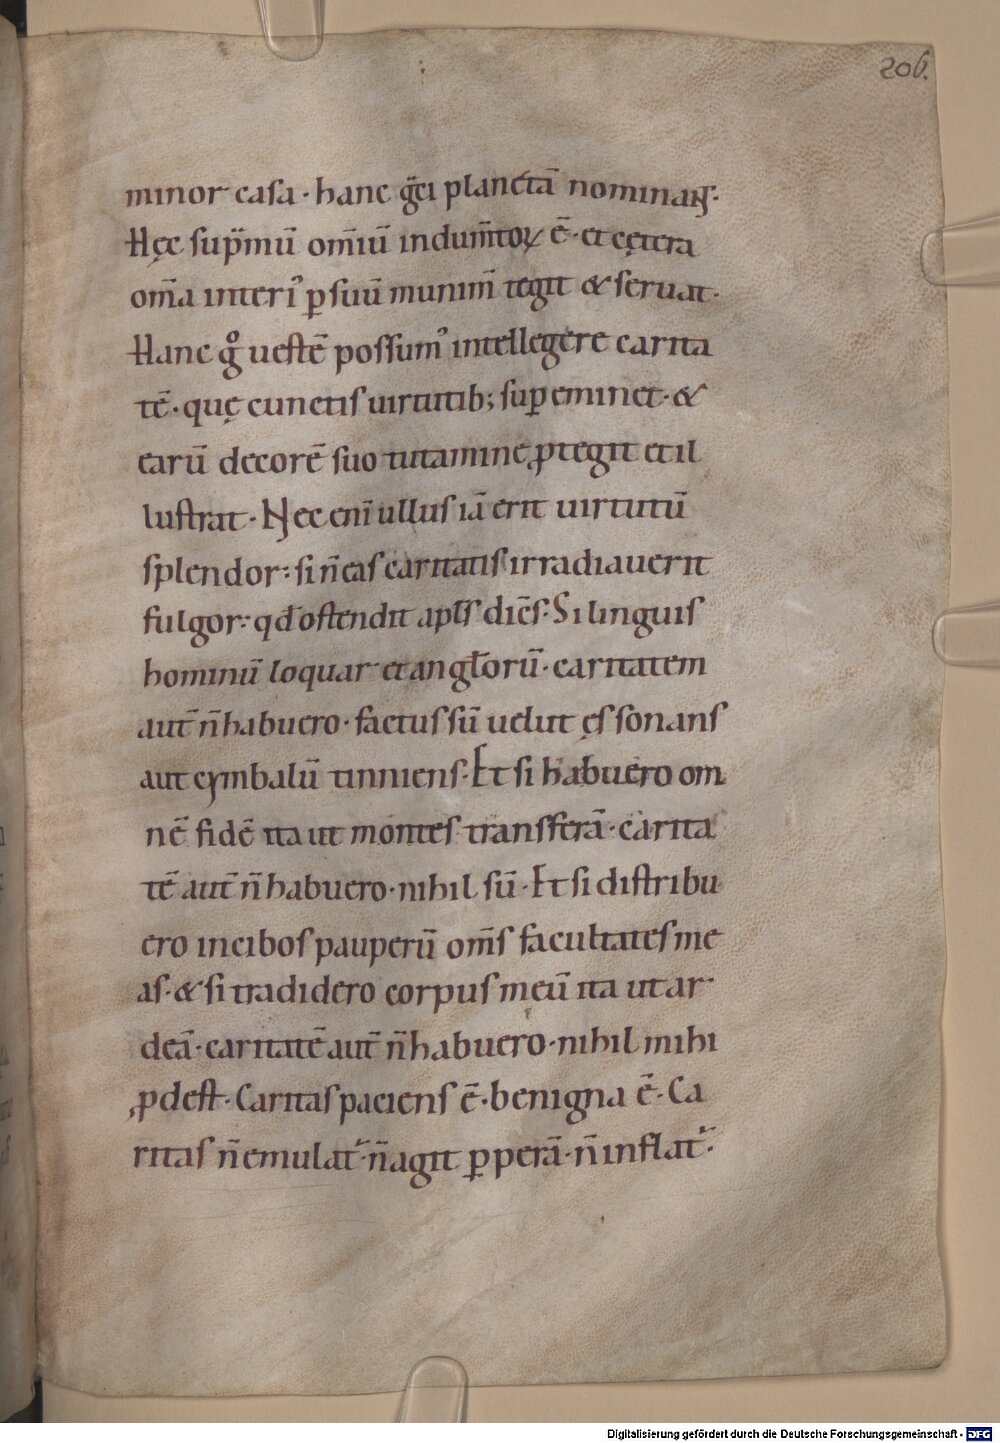 206.
minor casa · hanc g̅ci planetā nominaɴꝭ·
Hęc sup̄mū om̄iū indum̄toꝝ ē · et cętera
om̄a interiꝰ ꝑ suū munim̄ tegit & seruat ·
Hanc gͦ uestē possumꝰ intellegere carita
tē · quę cunctis uirtutib; suꝑeminet · &
earū decorē suo tutamine ꝓtegit et il
lustrat · Nec eni̅ ullus iā erit uirtutū
splendor : si n̄ eas caritatis irradiauerit
fulgor : qđ ostendit apłs dicēs : Si linguis
hominū loquar et angłorū · caritatem
aut̄ n̄ habuero · factus sū uelut ęs sonans
aut cymbalū tinniens · Et si habuero om
nē fidē ita ut montes transferā · carita
tē aut̄ n̄ habuero · nihil sū · Et si distribu
ero in cibos pauperū om̄s facultates me
as · & si tradidero corpus meū ita ut ar
deā · caritatē aut̄ n̄ habuero · nihil mihi
ꝓdest · Caritas paciens ē · benigna ē · Ca
ritas n̄ emulat᷑ · n̄ agit ꝑperā · n̄ inflat᷑ ·
Digitalisierung gefördert durch die Deutsche Forschungsgemeinschaft - DFG